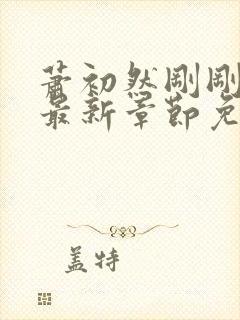 萧初然刚刚
最新章节免
盖特